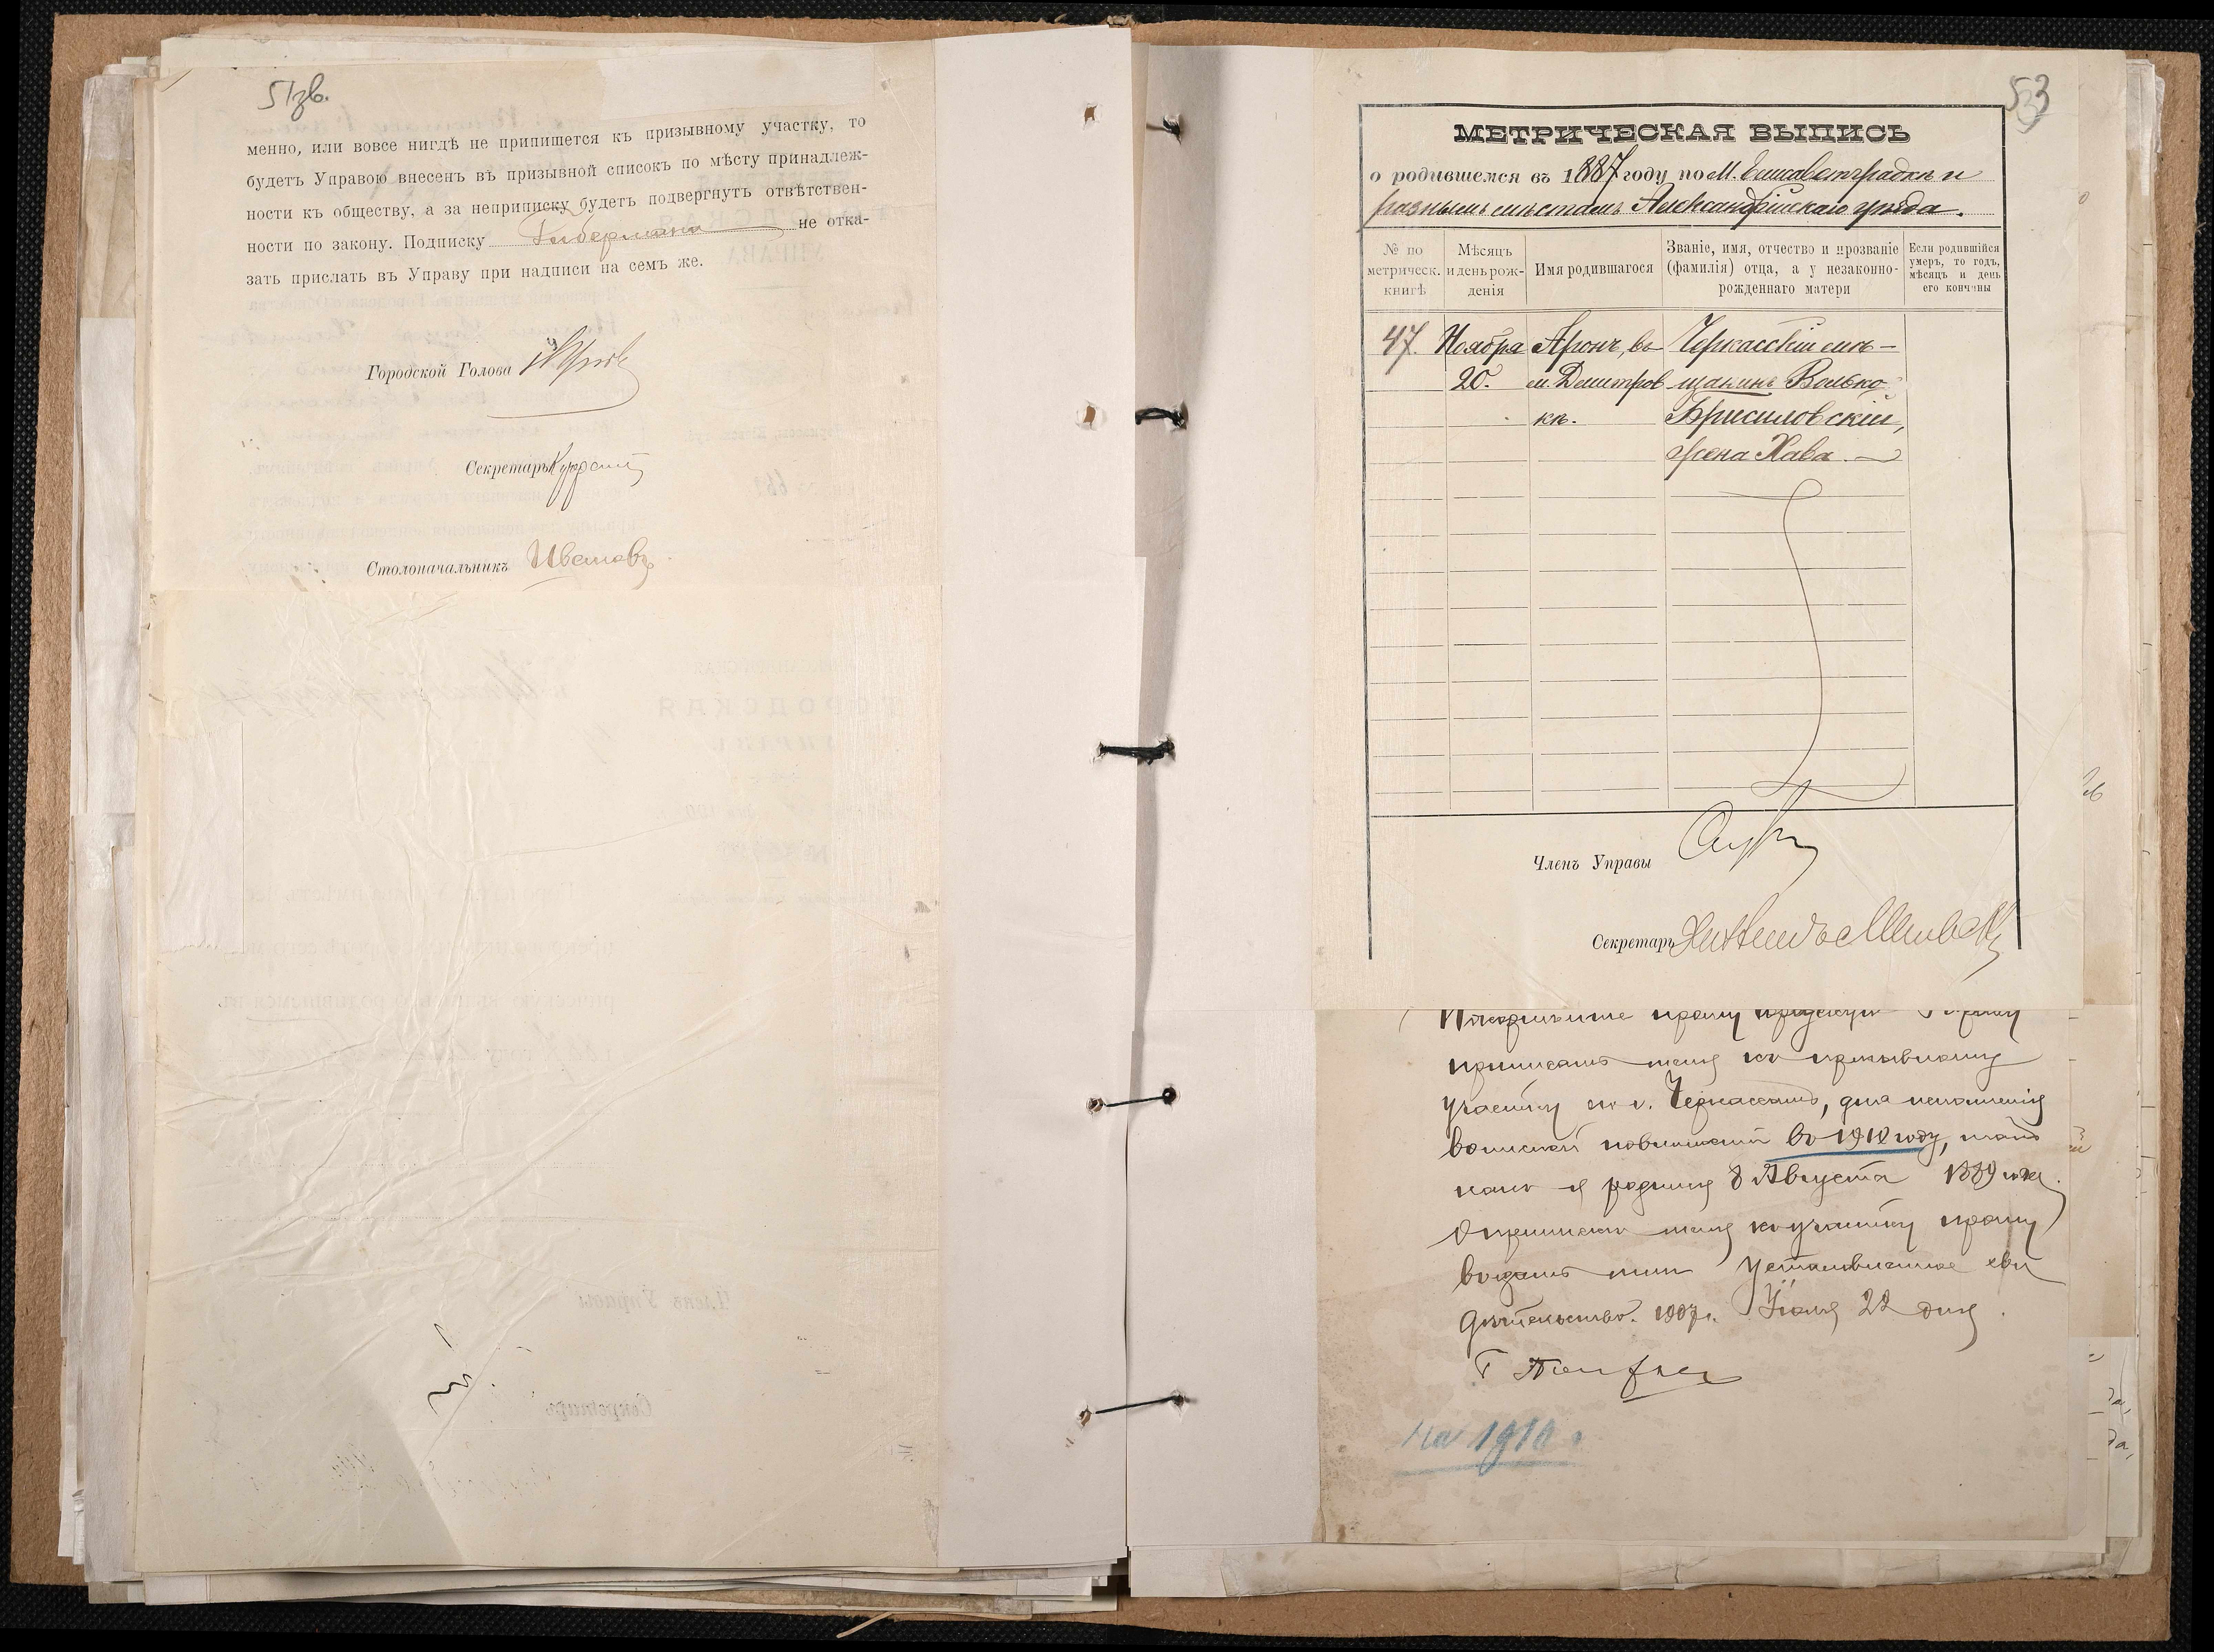 51зв.
менно, или вовсе нигдѣ не припишется къ призывному участку, то
будетъ Управою внесенъ въ призывной списокъ по мѣсту принадлеж-
ности къ обществу, а за неприписку будетъ подвергнутъ отвѣтствен-
ности по закону. Подписку Либермана не отка-
зать прислать въ Управу при надписи на семъ же.
Городской Голова
Секретарь
Столоначальникъ Ивановъ
53
МЕТРИЧЕСКАЯ ВЫПИСЬ
о родившемся въ 1887 году по М. Елисаветградкѣ и
разнымъ мѣстамъ Александрійскаго уѣзда.
№ по метрическ. книгѣ
Мѣсяцъ и день рож- денія
Имя родившагося
Званіе, имя, отчество и прозваніе (фамилія) отца, а у незаконно- рожденнаго матери
Если родившійся умеръ, то годъ, мѣсяцъ и день его кончины
47. Ноября Аронъ, въ Черкасскій мѣ-
20. м. Дмитров щанинъ Волько
кѣ. Брисиловскій,
жена Хава
Членъ Управы
Секретарь
приписать меня къ призывному
участку по г. Черкассамъ, для исполненія
воинской повинности въ 1910 году, такъ
какъ я родился 8 Августа 1889 года.
О припискѣ меня къ участку прошу
выдать мнѣ установленное сви
дѣтельство. 1907 г. Іюля 22 дня
На 1910 г.